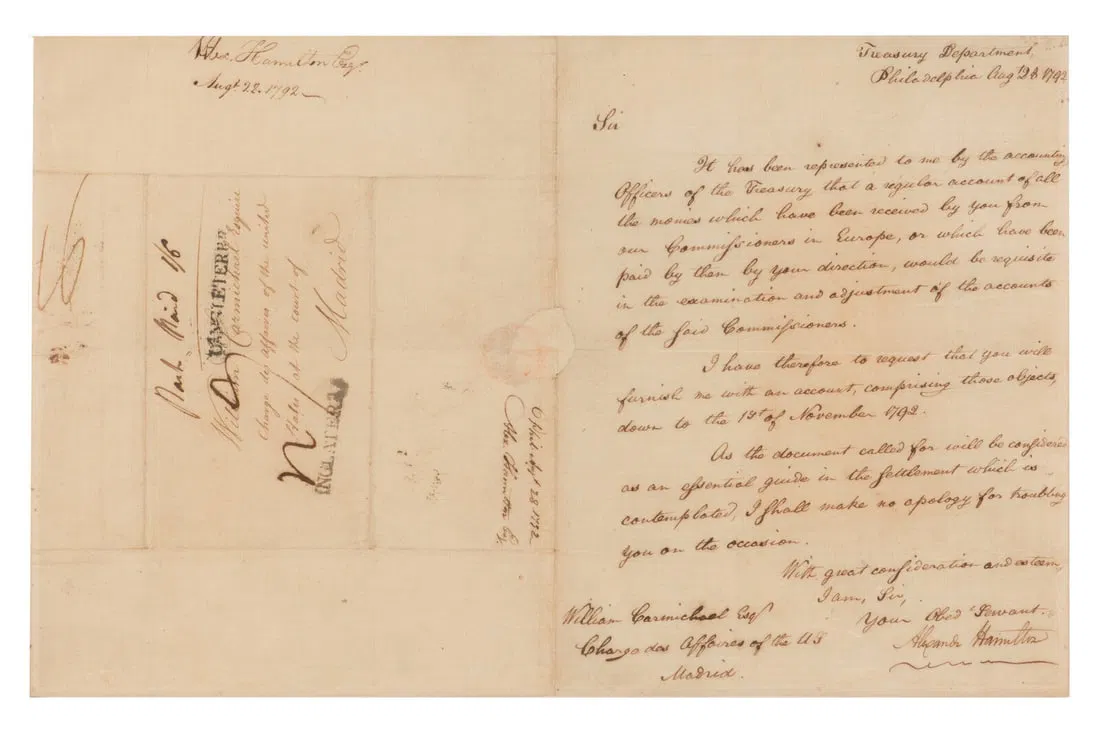 Alex. Hamilton Esqr.
Augt 22. 1792
Paid 1/6
ANGLETERRE
William Carmichael Esquire
Charge des affaires of the United
States at the Court of
Madrid
INGLATERRA
Phil. Augt 28 1792
Alex Hamilton Esq.
Treasury Department,
Philadelphia Augt 28 1792
Sir
It has been represented to me by the accounting
Officers of the Treasury that a regular account of all
the monies which have been received by you from
our Commissioners in Europe, or which have been
paid by them by your direction, would be requisite
in the examination and adjustment of the accounts
of the said Commissioners.
I have therefore to request that you will
furnish me with an account, comprising those objects,
down to the 1st of November 1792.
As the document called for will be considered
as an essential guide in the settlement which is
contemplated, I shall make no apology for troubling
you on the occasion.
With great consideration and esteem,
I am, Sir,
Your Obed Servant.
Alexander Hamilton
William Carmichael Esqr
Charge das Affaires of the US
Madrid.